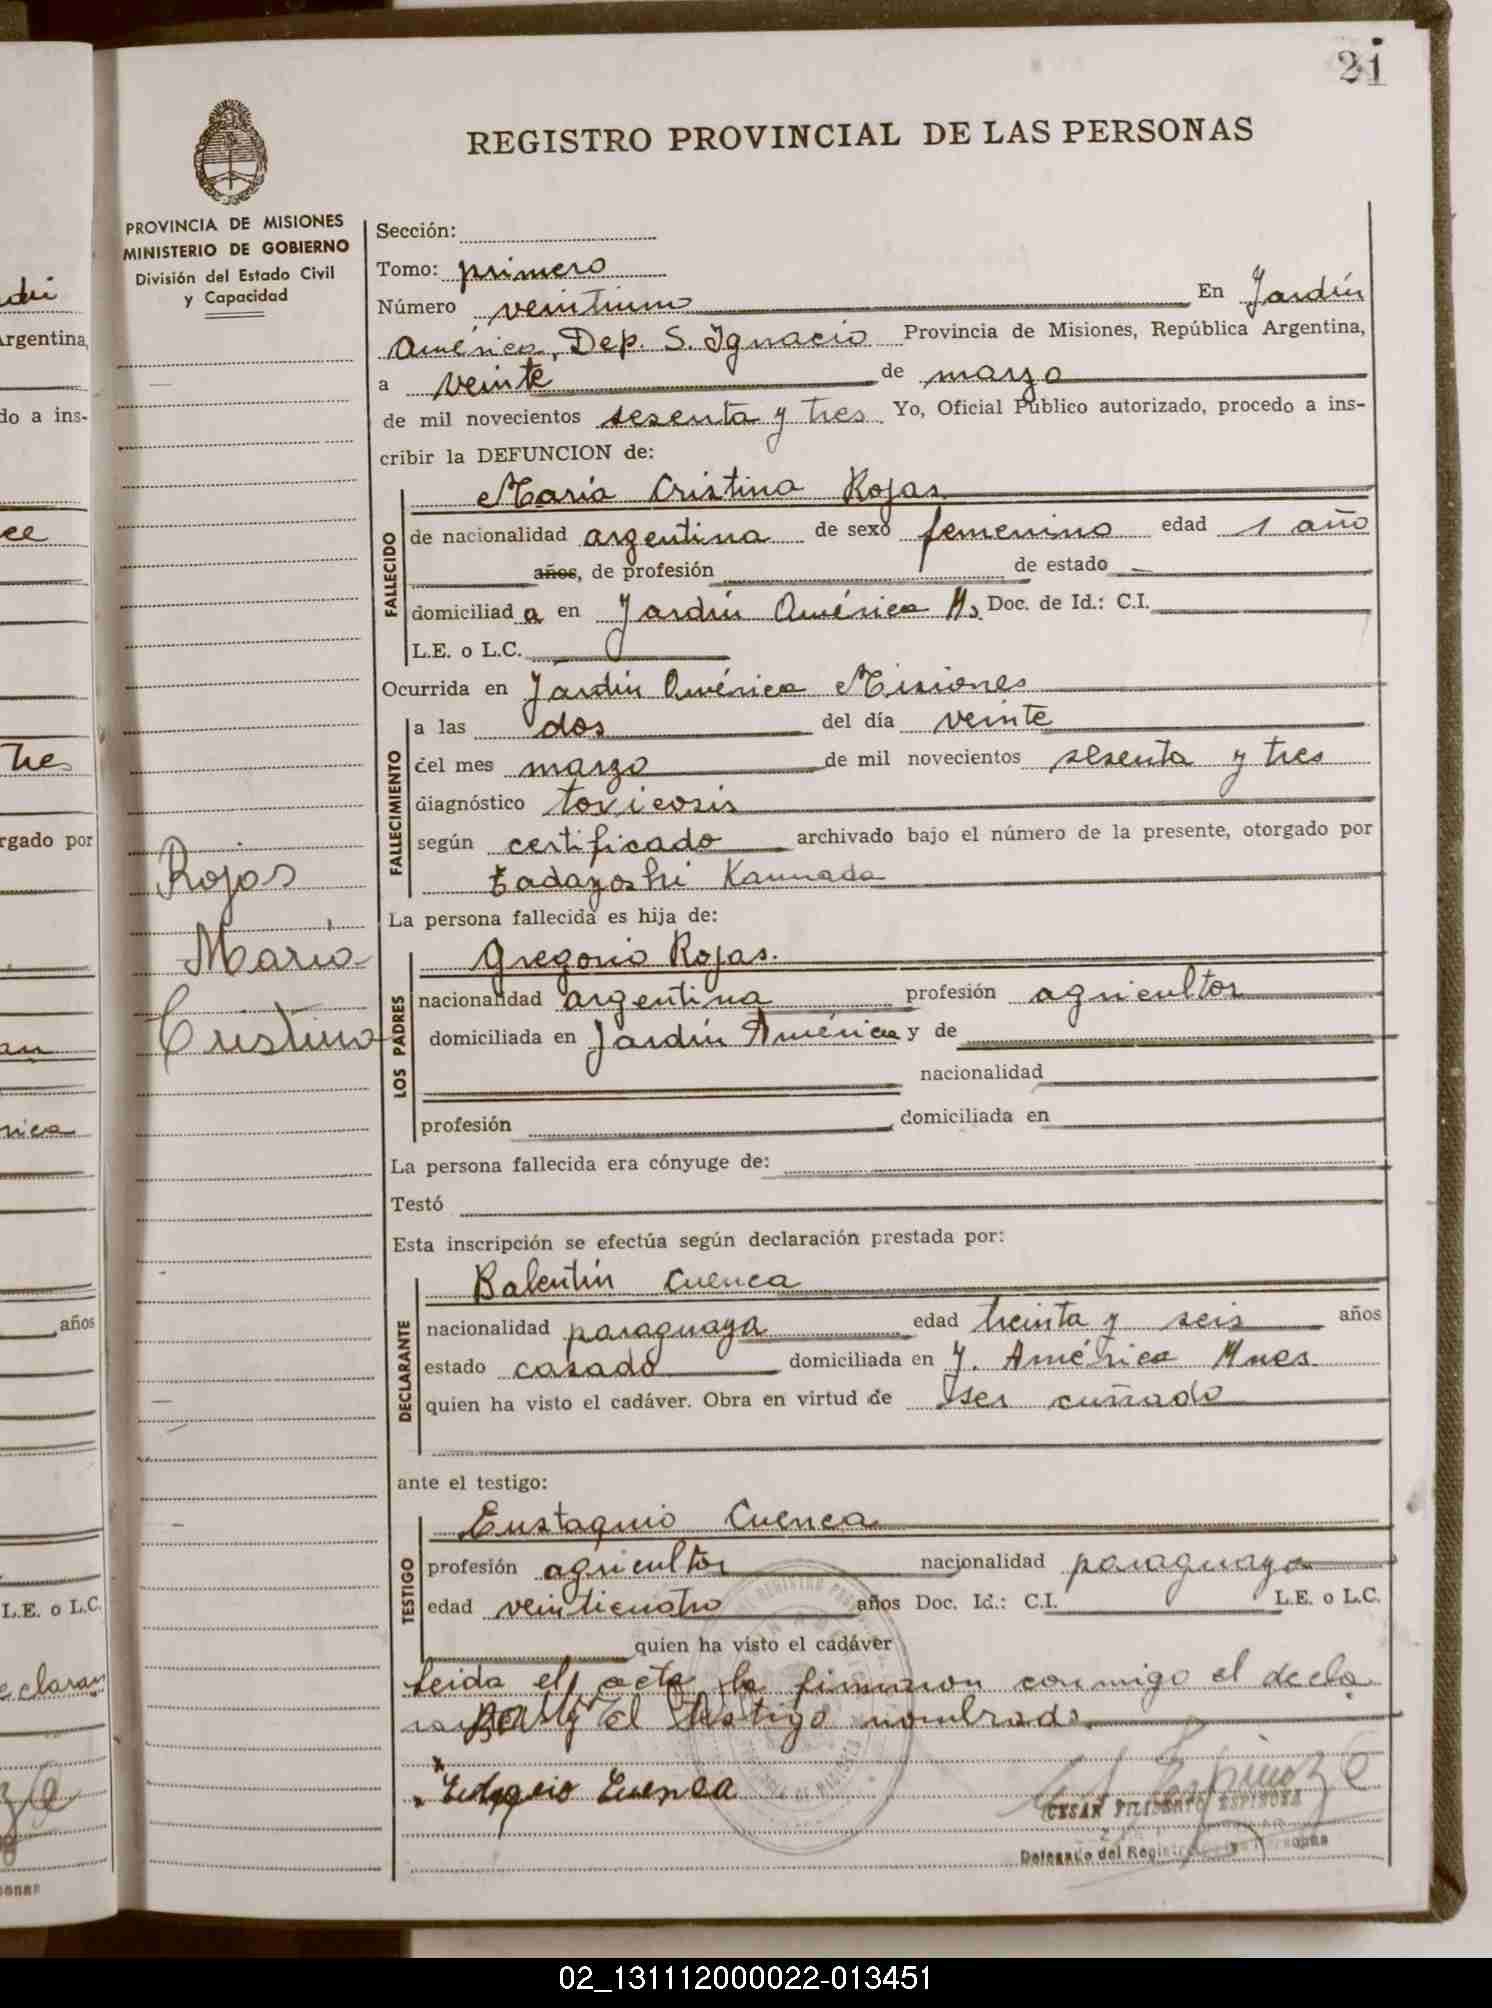 21
REGISTRO PROVINCIAL DE LAS PERSONAS
PROVINCIA DE MISIONES
MINISTERIO DE GOBIERNO
División del Estado Civil
y Capacidad
Sección:
Tomo: primero
Número veintiuno En Jardín
América, Dep. S. Ignacio Provincia de Misiones, República Argentina,
a veinte de marzo
de mil novecientos sesenta y tres Yo, Oficial Público autorizado, procedo a ins-
cribir la DEFUNCION de:
María Cristina Rojas
FALLECIDO
de nacionalidad argentina de sexo femenino edad 1 año
años, de profesión de estado
domiciliad a en Jardín América M. Doc. de Id.: C.I.
L.E. o L.C.
Ocurrida en Jardín América Misiones
FALLECIMIENTO
a las dos del día veinte
del mes marzo de mil novecientos sesenta y tres
diagnóstico toxicosis
según certificado archivado bajo el número de la presente, otorgado por
Tadayoshi Kannada
Rojas
María
Cristina
La persona fallecida es hija de:
Gregorio Rojas.
LOS PADRES
nacionalidad argentina profesión agricultor
domiciliada en Jardín América y de
nacionalidad
profesión domiciliada en
La persona fallecida era cónyuge de:
Testó
Esta inscripción se efectúa según declaración prestada por:
Balentín Cuenca
DECLARANTE
nacionalidad paraguaya edad treinta y seis años
estado casado domiciliada en J. América Mnes
quien ha visto el cadáver. Obra en virtud de ser cuñado
ante el testigo:
Eustaquio Cuenca
TESTIGO
profesión agricultor nacionalidad paraguaya
edad veinticuatro años Doc. Id.: C.I. L.E. o L.C.
quien ha visto el cadáver
Leida el acta la firmaron conmigo el decla
y el testigo nombrado.
Cuenca
CESAR FILIBERTO ESPINOZA
Delegado del Registro de las Personas
02_131112000022-013451